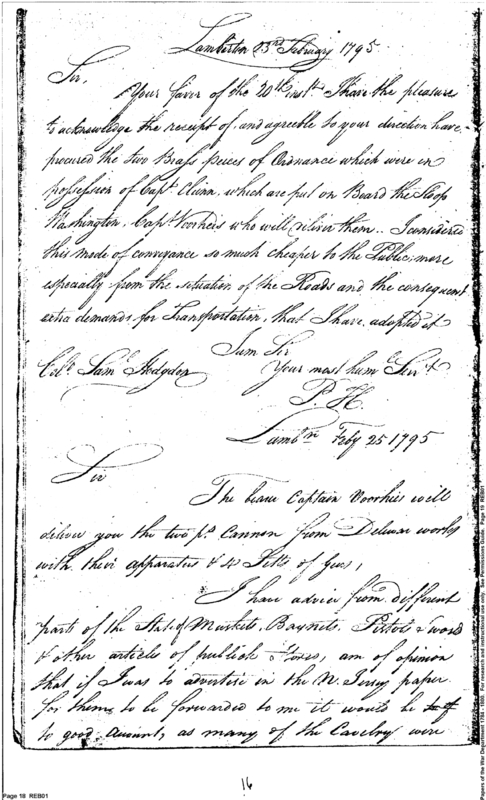 Lamberton 23rd February 1795
Sir,
Your favor of the 20th inst I have the pleasure
to acknowledge the receipt of, and agreeble to your direction have
procured the two Brass peices of Ordnance which were in
possession of Capt Clunn, which are put on Board the Sloop
Washington, Capt Voorheis who will deliver them.. I considered
this mode of conveyance so much cheaper to the Public, more
especially from the situation of the Roads and the consequent
extra demands for Transportation, that I have adopted it
I am Sir
Your most humle Servt
Colo Saml Hodgdon
P. H.
Lambtn Feby 25 1795
Sir
The bearer Captain Voorhies will
deliver you the two ps Cannon from Delewar works
with their apparatus &
I have advice from different
parts of the State, of Muskets, Bayonets, Pistols & Sword
& other articles of publick Stores, am of opinion
that if I was to advertise in the N. Jersey paper
for them to be forwarded to me it would be
to good amount, as many of the Cavelry were
16
Page 18 REB01
Papers of the War Department 1784 - 1800. For research and instructional use only. See Permissions Guide. Page 18 REB01